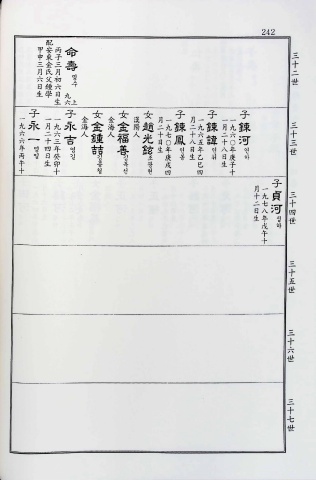 242
三十二世
命壽 명수 九六上
丙子三月初六日生
配安東金氏父鍾學
甲申三月六日生
三十三世
子 鍊河 연하
一九六〇年庚子十
月二十八日生
子 鍊諱 연휘
一九六五年乙巳四
月二十八日生
子 鍊鳳 연봉
一九七〇年庚戌四
月二十日生
女 趙光鉉 조광현
漢陽人
女 金福善 김복선
金海人
女 金鍾喆 김종철
金海人
子 永吉 영길
一九六三年癸卯十
一月二十四日生
子 永一 영일
一九六六年丙午十
三十四世
子 貞河 정하
一九七八年戊午十
月十二日生
三十五世
三十六世
三十七世